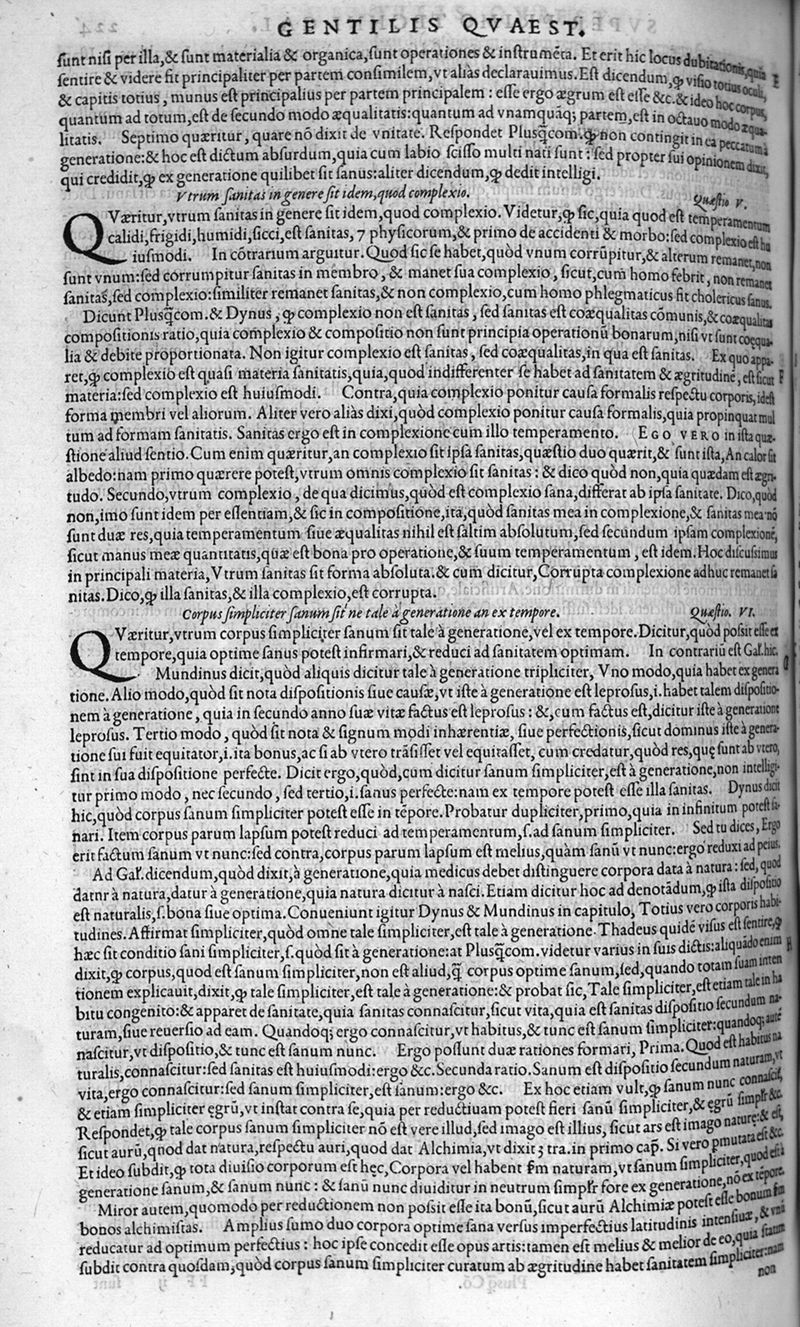 GENTILIS QVAEST.
sunt nisi per illa,& sunt materialia & organica, sunt operationes & instrumēta. Et erit hic locus dubitationis, quia
sentire & videre fit principaliter per partem consimilem, vt alias declarauimus. Est dicendum, ꝙ visio totius oculi,
& capitis totius, munus est principalius per partem principalem : esse ergo ægrum est esse &c. & ideo hoc corpus,
quantum ad totum, est de secundo modo æqualitatis: quantum ad vnamquāq; partem, est in octauo modo æqua-
litatis. Septimo quæritur, quare nō dixit de vnitate. Respondet Plusq̃com. ꝙ non contingit in ea peccatum à
generatione: & hoc est dictum absurdum, quia cum labio scisso multi nati sunt : sed propter sui opinionem dixit,
qui credidit, ꝙ ex generatione quilibet sit sanus: aliter dicendum, ꝙ dedit intelligi.
Vtrum sanitas in genere sit idem, quod complexio. Quæstio V.
QVæritur, vtrum sanitas in genere sit idem, quod complexio. Videtur, ꝙ sic, quia quod est temperamentum
calidi, frigidi, humidi, sicci, est sanitas, 7 physicorum, & primo de accidenti & morbo: sed complexio est hu
iusmodi. In cōtrarium arguitur. Quod sic se habet, quòd vnum corrūpitur, & alterum remanet, non
sunt vnum: sed corrumpitur sanitas in membro, & manet sua complexio, sicut, cum homo febrit, non remanet
sanitas, sed complexio: similiter remanet sanitas, & non complexio, cum homo phlegmaticus fit cholericus sanus.
Dicunt Plusq̃com. & Dynus, ꝙ complexio non est sanitas, sed sanitas est coæqualitas cōmunis, & coæqualitas
compositionis ratio, quia complexio & compositio non sunt principia operationū bonarum, nisi vt sunt coęqua-
lia & debite proportionata. Non igitur complexio est sanitas, sed coæqualitas, in qua est sanitas. Ex quo appa-
ret, ꝙ complexio est quasi materia sanitatis, quia, quod indifferenter se habet ad sanitatem & ægritudinē, est sicut
materia: sed complexio est huiusmodi. Contra, quia complexio ponitur causa formalis respectu corporis, idest
forma membri vel aliorum. Aliter vero aliàs dixi, quòd complexio ponitur causa formalis, quia propinquat mul
tum ad formam sanitatis. Sanitas ergo est in complexione cum illo temperamento. EGO VERO in ista quæ-
stione aliud sentio. Cum enim quæritur, an complexio sit ipsa sanitas, quæstio duo quærit, & sunt ista, An calor sit
albedo: nam primo quærere potest, vtrum omnis complexio sit sanitas : & dico quòd non, quia quædam est ægri-
tudo. Secundo, vtrum complexio, de qua dicimus, quòd est complexio sana, differat ab ipsa sanitate. Dico, quòd
non, imo sunt idem per essentiam, & sic in compositione, ita, quòd sanitas mea in complexione, & sanitas mea nō
sunt duæ res, quia temperamentum siue æqualitas nihil est saltim absolutum, sed secundum ipsam complexionē,
sicut manus meæ quantitatis, quæ est bona pro operatione, & suum temperamentum, est idem. Hoc discussimus
in principali materia, Vtrum sanitas sit forma absoluta. & cum dicitur, Corrupta complexione adhuc remanet sa
nitas. Dico, ꝙ illa sanitas, & illa complexio, est corrupta.
Corpus simpliciter sanum sit ne tale à generatione an ex tempore. Quæstio. VI.
QVæritur, vtrum corpus simpliciter sanum sit tale à generatione, vel ex tempore. Dicitur, quòd possit esse ex
tempore, quia optime sanus potest infirmari, & reduci ad sanitatem optimam. In contrariū est Gal. hic.
Mundinus dicit, quòd aliquis dicitur tale à generatione tripliciter, Vno modo, quia habet ex genera
tione. Alio modo, quòd sit nota dispositionis siue causæ, vt iste à generatione est leprosus, i. habet talem dispositio-
nem à generatione, quia in secundo anno suæ vitæ factus est leprosus : &, cum factus est, dicitur iste à generatione
leprosus. Tertio modo, quòd sit nota & signum modi inhærentiæ, siue perfectionis, sicut dominus iste à genera-
tione sui fuit equitator, i. ita bonus, ac si ab vtero trāsisset vel equitasset, cum credatur, quòd res, quę sunt ab vtero,
sint in sua dispositione perfecte. Dicit ergo, quòd, cum dicitur sanum simpliciter, est à generatione, non intelligi-
tur primo modo, nec secundo, sed tertio, i. sanus perfecte: nam ex tempore potest esse illa sanitas. Dynus dicit
hic, quòd corpus sanum simpliciter potest esse in tēpore. Probatur dupliciter, primo, quia in infinitum potest sa-
nari. Item corpus parum lapsum potest reduci ad temperamentum, s. ad sanum simpliciter. Sed tu dices, Ergo
erit factum sanum vt nunc: sed contra, corpus parum lapsum est melius, quàm sanū vt nunc: ergo reduxi ad peius.
Ad Gal. dicendum, quòd dixit, à generatione, quia medicus debet distinguere corpora data à natura: sed, quod
datur à natura, datur à generatione, quia natura dicitur à nasci. Etiam dicitur hoc ad denotādum, ꝙ ista dispositio
est naturalis, s. bona siue optima. Conueniunt igitur Dynus & Mundinus in capitulo, Totius vero corporis habi-
tudines. Affirmat simpliciter, quòd omne tale simpliciter, est tale à generatione. Thadeus quidē visus est sentire, ꝙ
hæc sit conditio sani simpliciter, s. quòd sit à generatione: at Plusq̃com. videtur varius in suis dictis: aliquādo enim
dixit, ꝙ corpus, quod est sanum simpliciter, non est aliud, q̃ corpus optime sanum, sed, quando totam suam inten
tionem explicauit, dixit, ꝙ tale simpliciter, est tale à generatione: & probat sic, Tale simpliciter, est etiam tale in ha
bitu congenito: & apparet de sanitate, quia sanitas connascitur, sicut vita, quia est sanitas dispositio secundum na-
turam, siue reuersio ad eam. Quandoq; ergo connascitur, vt habitus, & tunc est sanum simpliciter: quandoq; autē
nascitur, vt dispositio, & tunc est sanum nunc. Ergo possunt duæ rationes formari, Prima. Quod est habitus na
turalis, connascitur: sed sanitas est huiusmodi: ergo &c. Secunda ratio. Sanum est dispositio secundum naturam, vt
vita, ergo connascitur: sed sanum simpliciter, est sanum: ergo &c. Ex hoc etiam vult, ꝙ sanum nunc connascit,
& etiam simpliciter ęgrū, vt instat contra se, quia per reductiuam potest fieri sanū simpliciter, & ęgrū simplr &c.
Respondet, ꝙ tale corpus sanum simpliciter nō est vere illud, sed imago est illius, sicut ars est imago naturę: & est,
sicut aurū, quod dat natura, respectu auri, quod dat Alchimia, vt dixit 3 tra. in primo cap. Si vero pmutata est &c.
Et ideo subdit, ꝙ tota diuisio corporum est hęc, Corpora vel habent ſm naturam, vt sanum simpliciter, quod est à
generatione sanum, & sanum nunc : & sanū nunc diuiditur in neutrum simplr fore ex generatione, nō ex tēpore.
Miror autem, quomodo per reductionem non possit esse ita bonū, sicut aurū Alchimiæ potest esse bonum
bonos alchimistas. Amplius sumo duo corpora optime sana versus imperfectius latitudinis intensiuæ, & vnū
reducatur ad optimum perfectius : hoc ipse concedit esse opus artis: tamen est melius & melior de eo, quia statim
subdit contra quosdam, quòd corpus sanum simpliciter curatum ab ægritudine habet sanitatem simpliciter: nam
non